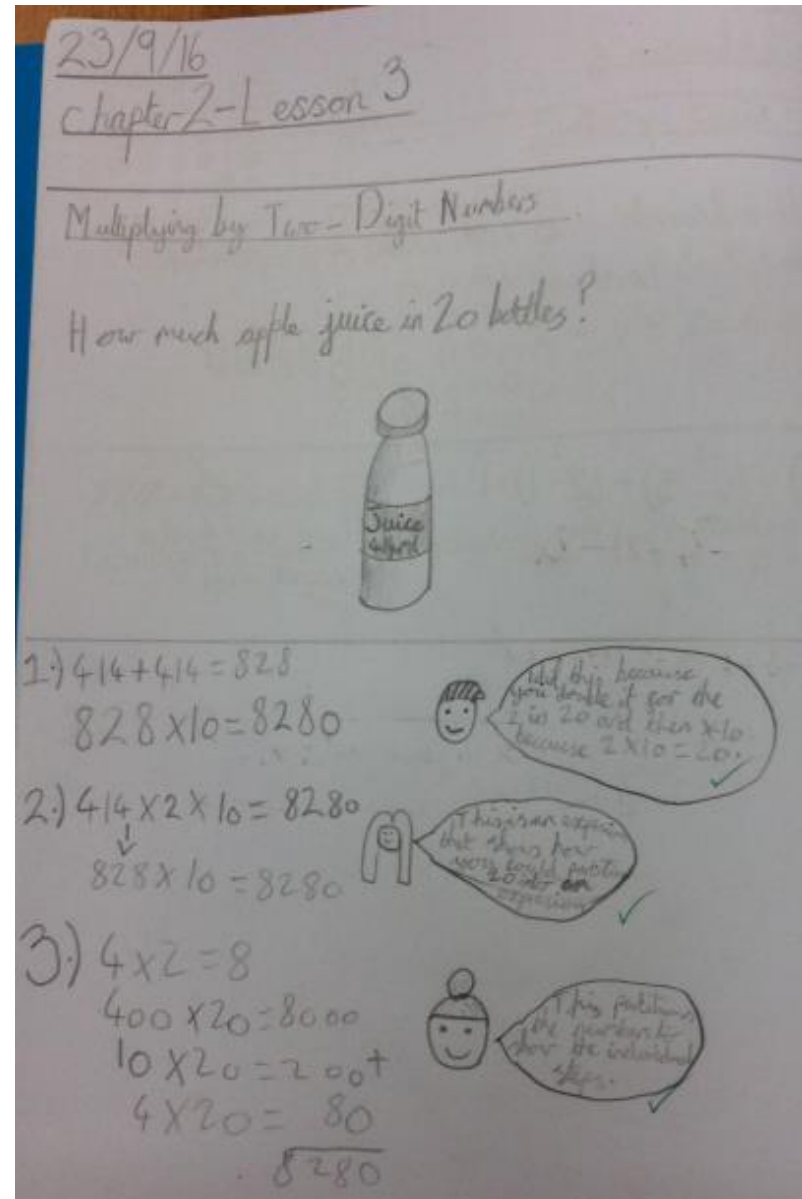 23/9/16
Chapter 2 - Lesson 3
Multiplying by Two-Digit Numbers
How much apple juice in 20 bottles?
Juice
1.) 414+414=828
828x10=8280
I did this because
you double it for the
2 in 20 and then x10
because 2x10=20.
2.) 414x2x10=8280
828x10=8280
This is an expression
that shows how
you could partition
20 into an
expression
3.) 4x2=8
400x20=8000
10x20=200+
4x20=80
8280
This partitions
the numbers to
show the individual
steps.